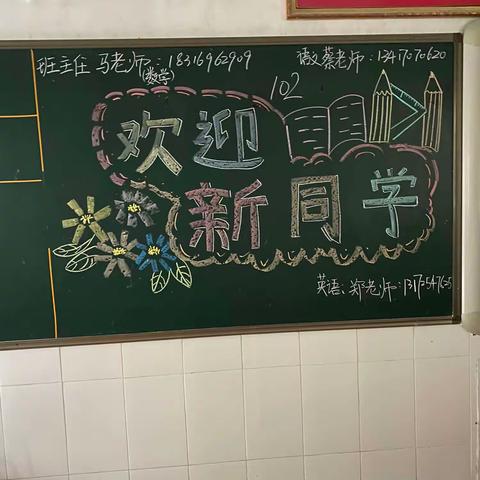 班主任 马老师:18316962909
(数学)
语文 蔡老师:13417070620
102
欢迎
新同学
英语:郑老师: